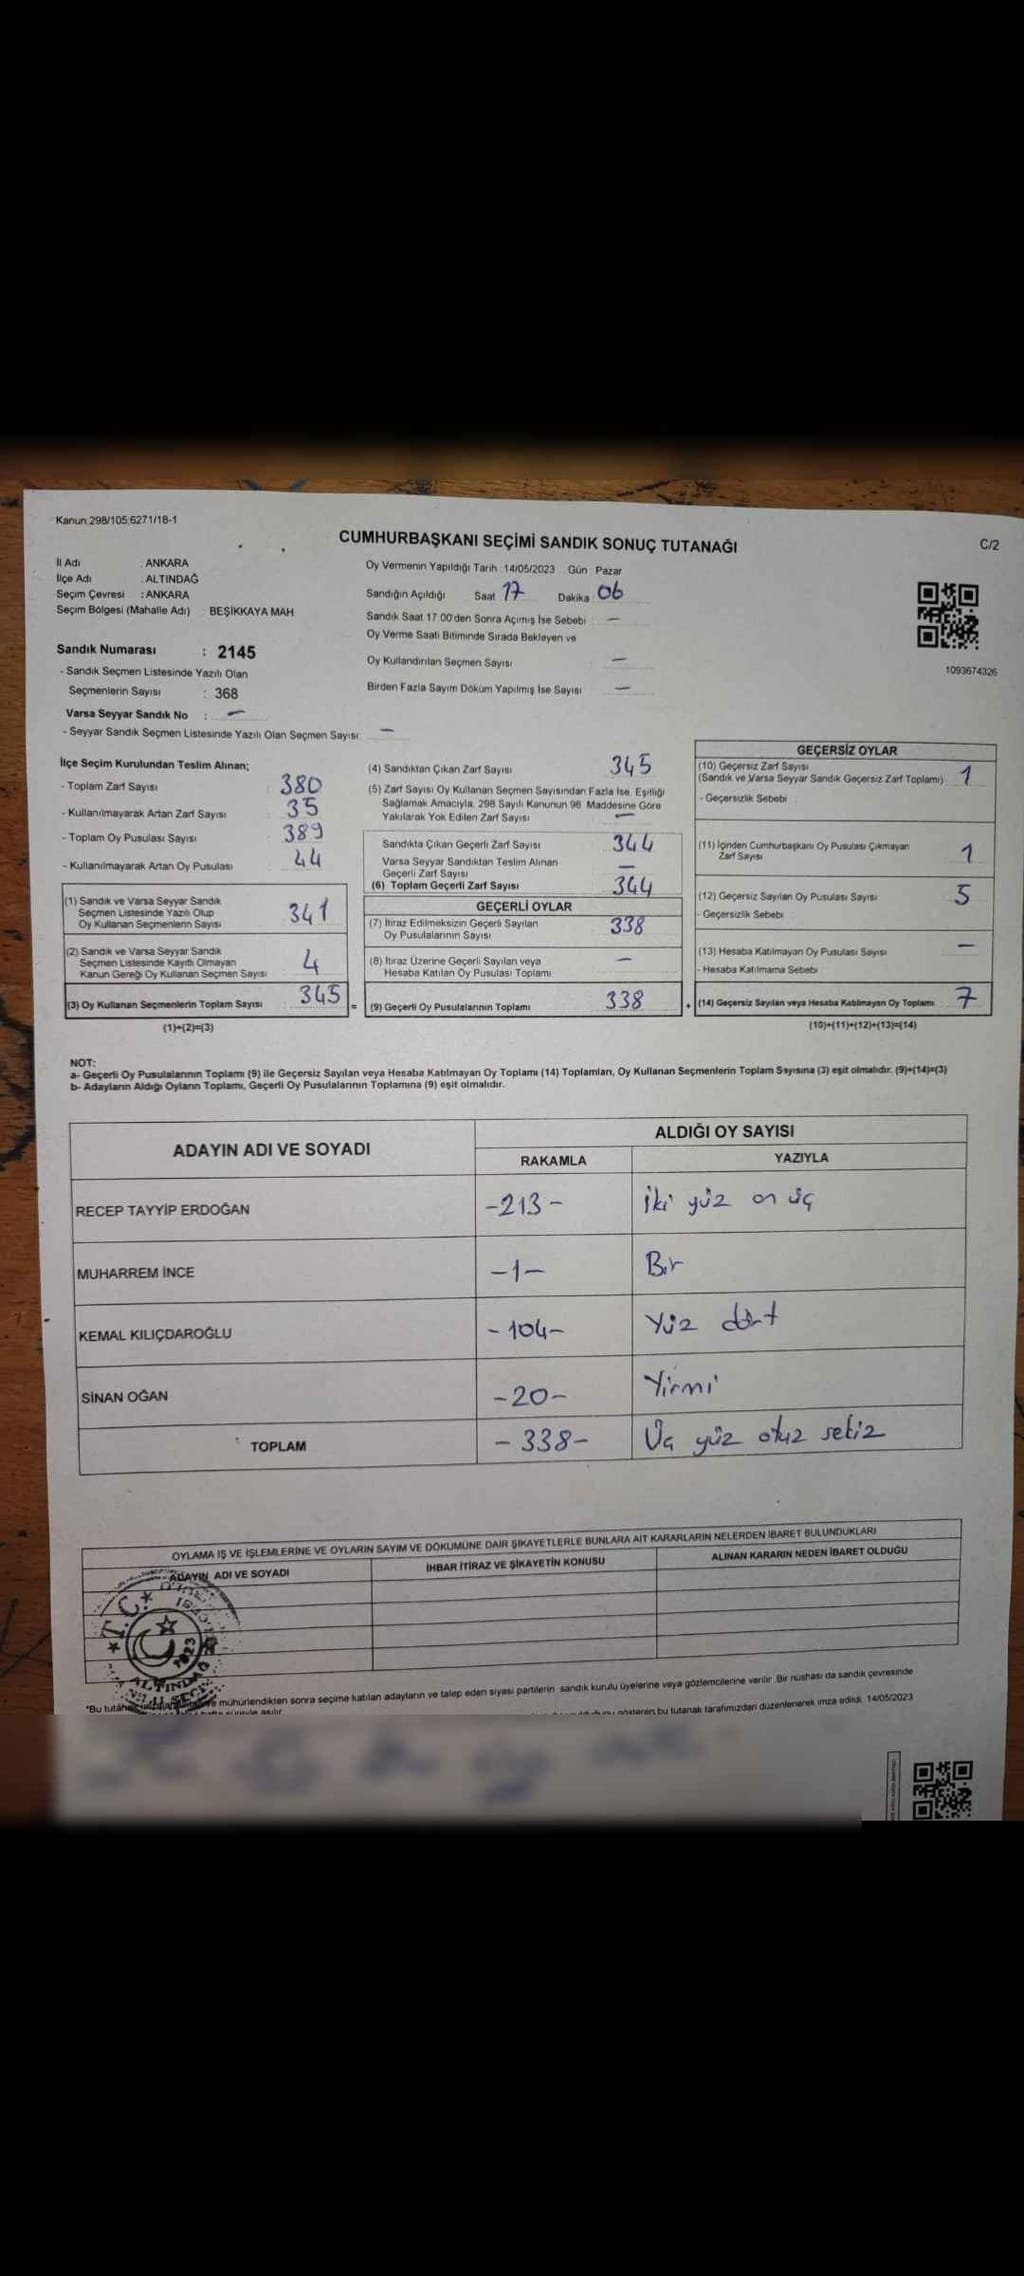 Kanun 298/105;6271/18-1
CUMHURBAŞKANI SEÇİMİ SANDIK SONUÇ TUTANAĞI
C/2
İl Adı : ANKARA
İlçe Adı : ALTINDAĞ
Seçim Çevresi : ANKARA
Seçim Bölgesi (Mahalle Adı) : BEŞİKKAYA MAH
Sandık Numarası : 2145
- Sandık Seçmen Listesinde Yazılı Olan
Seçmenlerin Sayısı : 368
Varsa Seyyar Sandık No : —
- Seyyar Sandık Seçmen Listesinde Yazılı Olan Seçmen Sayısı: —
Oy Vermenin Yapıldığı Tarih :14/05/2023 Gün : Pazar
Sandığın Açıldığı Saat 17 Dakika : 06
Sandık Saat 17 00'den Sonra Açılmış İse Sebebi : —
Oy Verme Saati Bitiminde Sırada Bekleyen ve
Oy Kullandırılan Seçmen Sayısı —
Birden Fazla Sayım Döküm Yapılmış İse Sayısı —
1093674326
İlçe Seçim Kurulundan Teslim Alınan;
- Toplam Zarf Sayısı : 380
- Kullanılmayarak Artan Zarf Sayısı : 35
- Toplam Oy Pusulası Sayısı : 389
- Kullanılmayarak Artan Oy Pusulası : 44
(1) Sandık ve Varsa Seyyar Sandık
Seçmen Listesinde Yazılı Olup
Oy Kullanan Seçmenlerin Sayısı : 341
(2) Sandık ve Varsa Seyyar Sandık
Seçmen Listesinde Kayıtlı Olmayan
Kanun Gereği Oy Kullanan Seçmen Sayısı 4
(3) Oy Kullanan Seçmenlerin Toplam Sayısı 345 =
(1)+(2)=(3)
(4) Sandıktan Çıkan Zarf Sayısı 345
(5) Zarf Sayısı Oy Kullanan Seçmen Sayısından Fazla İse, Eşitliği
Sağlamak Amacıyla, 298 Sayılı Kanunun 98. Maddesine Göre
Yakılarak Yok Edilen Zarf Sayısı —
Sandıkta Çıkan Geçerli Zarf Sayısı 344
Varsa Seyyar Sandıktan Teslim Alınan
Geçerli Zarf Sayısı —
(6) Toplam Geçerli Zarf Sayısı 344
GEÇERLİ OYLAR
(7) İtiraz Edilmeksizin Geçerli Sayılan
Oy Pusulalarının Sayısı 338
(8) İtiraz Üzerine Geçerli Sayılan veya
Hesaba Katılan Oy Pusulası Toplamı —
(9) Geçerli Oy Pusulalarının Toplamı 338 +
GEÇERSİZ OYLAR
(10) Geçersiz Zarf Sayısı
(Sandık ve Varsa Seyyar Sandık Geçersiz Zarf Toplamı) 1
- Geçersizlik Sebebi
(11) İçinden Cumhurbaşkanı Oy Pusulası Çıkmayan
Zarf Sayısı 1
(12) Geçersiz Sayılan Oy Pusulası Sayısı 5
- Geçersizlik Sebebi
(13) Hesaba Katılmayan Oy Pusulası Sayısı —
- Hesaba Katılmama Sebebi
(14) Geçersiz Sayılan veya Hesaba Katılmayan Oy Toplamı 7
(10)+(11)+(12)+(13)=(14)
NOT:
a- Geçerli Oy Pusulalarının Toplamı (9) ile Geçersiz Sayılan veya Hesaba Katılmayan Oy Toplamı (14) Toplamları, Oy Kullanan Seçmenlerin Toplam Sayısına (3) eşit olmalıdır. (9)+(14)=(3)
b- Adayların Aldığı Oyların Toplamı, Geçerli Oy Pusulalarının Toplamına (9) eşit olmalıdır.
ADAYIN ADI VE SOYADI
ALDIĞI OY SAYISI
RAKAMLA YAZIYLA
RECEP TAYYİP ERDOĞAN -213- iki yüz on üç
MUHARREM İNCE -1- Bir
KEMAL KILIÇDAROĞLU -104- Yüz dört
SİNAN OĞAN -20- Yirmi
TOPLAM -338- Üç yüz otuz sekiz
OYLAMA İŞ VE İŞLEMLERİNE VE OYLARIN SAYIM VE DÖKÜMÜNE DAİR ŞİKAYETLERLE BUNLARA AİT KARARLARIN NELERDEN İBARET BULUNDUKLARI
ADAYIN ADI VE SOYADI İHBAR İTİRAZ VE ŞİKAYETİN KONUSU ALINAN KARARIN NEDEN İBARET OLDUĞU
T.C.
1923
ALTINDAĞ
*Bu mühürlendikten sonra seçime katılan adayların ve talep eden siyasi partilerin sandık kurulu üyelerine veya gözlemcilerine verilir. Bir nüshası da sandık çevresinde
gösteren bu tutanak tarafımızdan düzenlenerek imza edildi. 14/05/2023